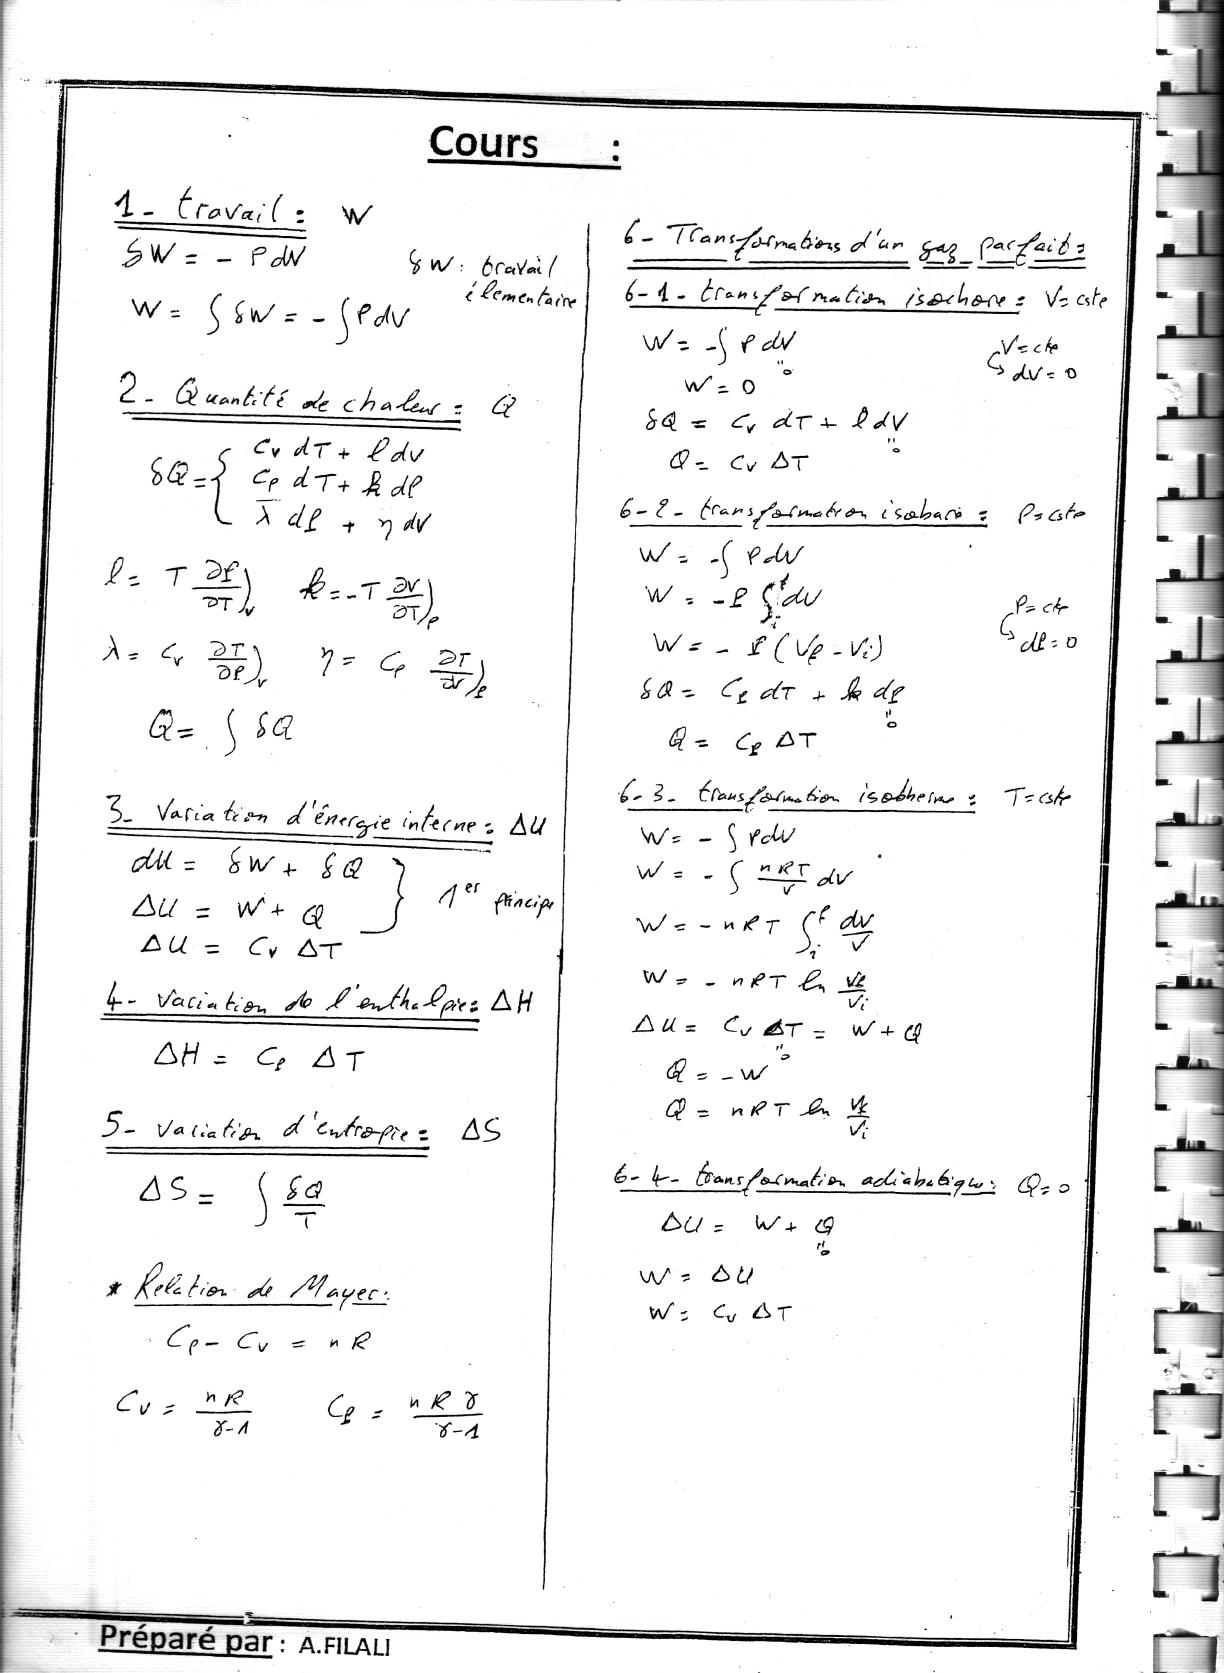 Cours :
1- travail : W
δW = - P dV
δW : travail
élementaire
W = ∫ δW = - ∫ P dV
2- Quantité de chaleur : Q
δQ = { Cv dT + l dv
Cp dT + k dP
λ dP + η dV
l = T ∂P/∂T)v   k = -T ∂V/∂T)p
λ = Cv ∂T/∂P)v   η = Cp ∂T/∂V)p
Q = ∫ δQ
3- Variation d'énergie interne : ΔU
dU = δW + δQ
ΔU = W + Q
} 1er principe
ΔU = Cv ΔT
4- Variation de l'enthalpie : ΔH
ΔH = Cp ΔT
5- Variation d'entropie : ΔS
ΔS = ∫ δQ/T
* Relation de Mayer :
Cp - Cv = nR
Cv = nR/γ-1   Cp = nRγ/γ-1
6- Transformations d'un gaz parfait :
6-1- transformation isochore : V = cste
W = -∫ P dV
"0
V = cte
↳ dV = 0
W = 0
δQ = Cv dT + l dV
"0
Q = Cv ΔT
6-2- transformation isobare : P = cste
W = -∫ P dV
W = -P ∫i^f dV
P = cte
↳ dP = 0
W = - P (Vf - Vi)
δQ = Cp dT + k dP
"0
Q = Cp ΔT
6-3- transformation isotherme : T = cste
W = - ∫ P dV
W = - ∫ nRT/V dV
W = - nRT ∫i^f dV/V
W = - nRT ln Vf/Vi
ΔU = Cv ΔT = W + Q
"0
Q = -W
Q = nRT ln Vf/Vi
6-4- transformation adiabatique : Q = 0
ΔU = W + Q
"0
W = ΔU
W = Cv ΔT
Préparé par : A.FILALI